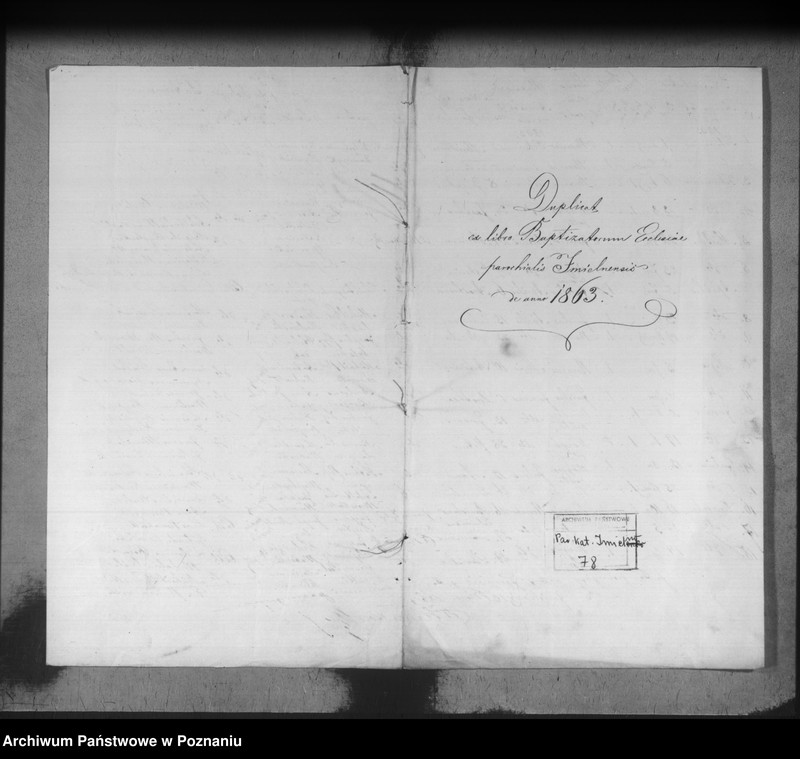 Duplicat
ex libro Baptizatorum Ecclesiae
parochialis Imielnensis
de anno 1863.
ARCHIWUM PAŃSTWOWE
Par. kat. Imielno
78
Archiwum Państwowe w Poznaniu